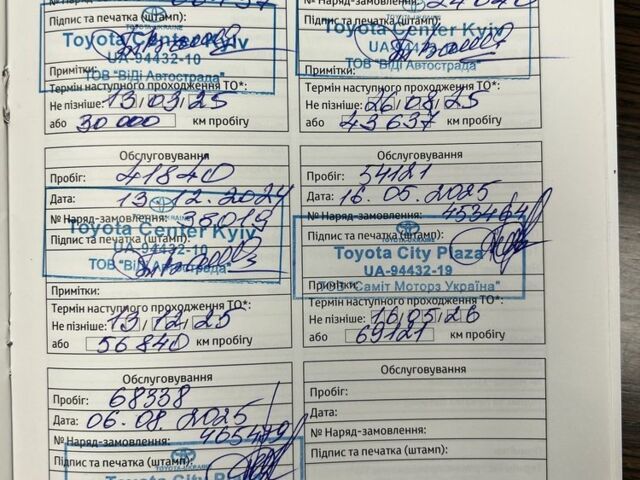 Підпис та печатка (штамп):
TOYOTA UKRAINE
Toyota Center Kyiv
UA-94432-10
ТОВ "ВіДі Автострада"
Примітки:
Термін наступного проходження ТО*:
Не пізніше: 13 03 25
або 30 000 км пробігу
№ Наряд-замовлення:
Підпис та печатка (штамп):
Toyota Center Kyiv
ТОВ "ВіДі Автострада"
Примітки:
Термін наступного проходження ТО*:
Не пізніше: 26 08 25
або 43 637 км пробігу
Обслуговування
Пробіг: 41840
Дата: 13.12.2024
№ Наряд-замовлення: 35019
Підпис та печатка (штамп):
Toyota Center Kyiv
UA-94432-10
ТОВ "ВіДі Автострада"
Примітки:
Термін наступного проходження ТО*:
Не пізніше: 13 12 25
або 56 840 км пробігу
Обслуговування
Пробіг: 54121
Дата: 16.05.2025
№ Наряд-замовлення: 453464
Підпис та печатка (штамп):
Toyota City Plaza
UA-94432-19
ТОВ "Саміт Моторз Україна"
Примітки:
Термін наступного проходження ТО*:
Не пізніше: 16 05 26
або 69121 км пробігу
Обслуговування
Пробіг: 68338
Дата: 06.08.2025
№ Наряд-замовлення: 465479
Підпис та печатка (штамп):
TOYOTA UKRAINE
Toyota City Plaza
Обслуговування
Пробіг:
Дата:
№ Наряд-замовлення:
Підпис та печатка (штамп):